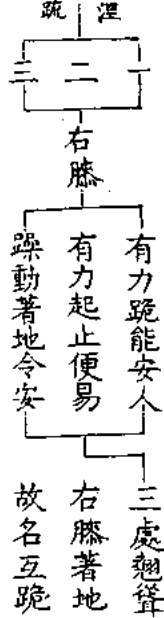 湼疏
一
二
三
右膝
有力跪能安人
有力起止便易
躁動著地令安
三處翹聳
右膝著地
故名互跪